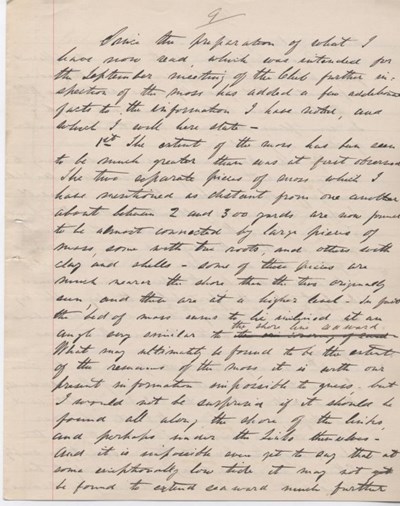 9
Since the preparation of what I
have now read, which was intended for
the September meeting of the Club further in-
spection of the moss has added a few additional
facts to the information I have noted, and
which I will here state -
1st The extent of the moss has been seen
to be much greater than was at first observed
The two separate pieces of moss which I
have mentioned as distant from one another
about between 2 and 300 yards are now found
to be almost connected by large pieces of
moss, some with tree roots, and others with
clay and shells - some of these pieces are
much nearer the shore than the two originally
seen, and these are at a higher level - In fact
the bed of moss seems to be inclined at an
angle very similar to the shore line as ward
What may ultimately be found to be the extent
of the remains of the moss it is with our
present information impossible to guess, but
I would not be surprised if it should be
found all along the shore of the links,
and perhaps under the links themselves -
And it is impossible even yet to say that at
some exceptionally low tide it may not yet
be found to extend seaward much further